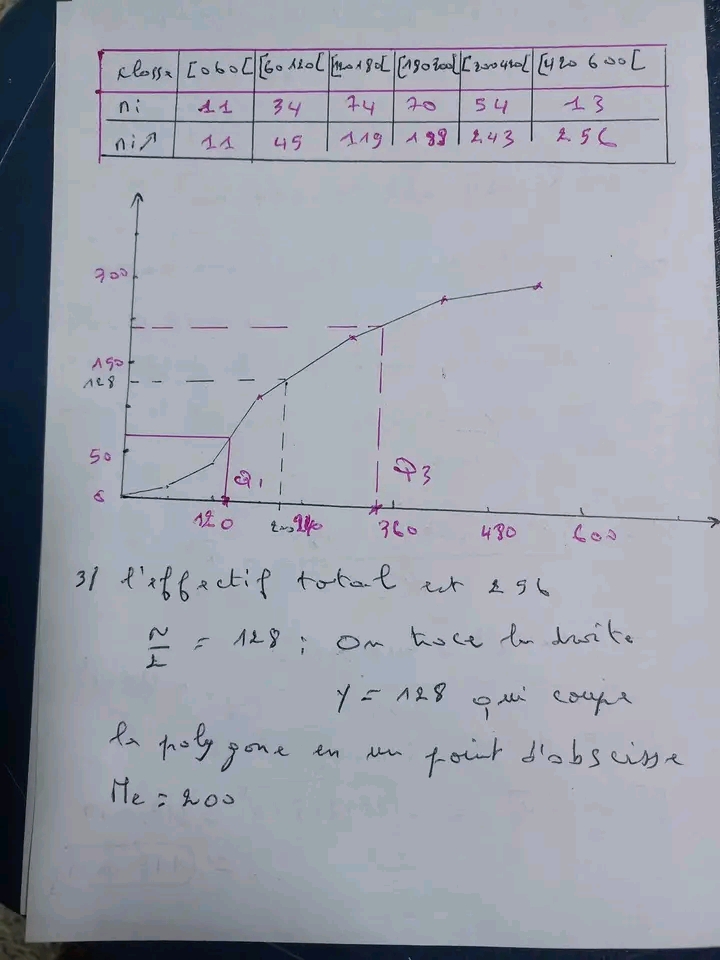 classe [0 60[ [60 120[ [120 180[ [180 300[ [300 420[ [420 600[
ni 11 34 74 70 54 13
ni↗ 11 45 119 189 243 256
700
150
128
50
Q1 Q3
120 200 240 360 480 600
3/ l'effectif total est 256
N/2 = 128 ; On trace la droite
y = 128 qui coupe
le polygone en un point d'abscisse
Me = 200